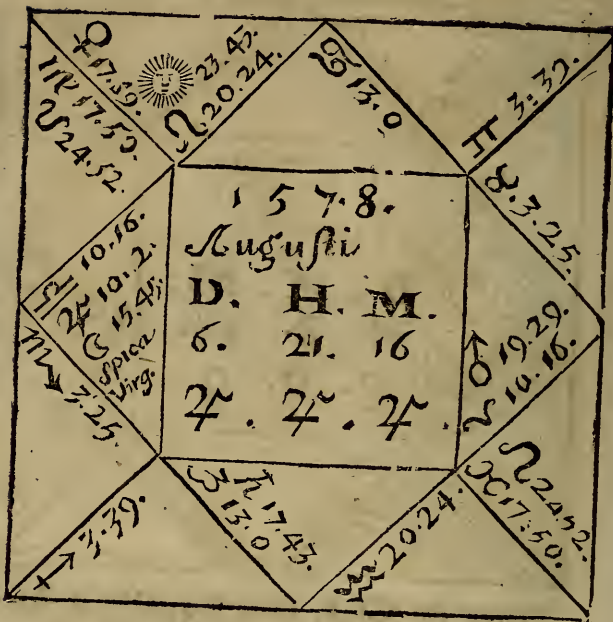 ♀ 17.59.
♍ 17.50.
☋ 24.52.
☉ 23.45.
♌ 20.24.
♋ 13.0
♊ 3:39.
♉.3.25.
1 5 7.8.
Augusti
D. H. M.
6. 21. 16
♃. ♃. ♃.
♎ 10.16.
♃ 10.2.
☾ 15.45.
Spica
Virg.
♏ 3.25.
♂ 19.29.
♈ 10.16.
♐ 3.39.
♄ 17.43.
♑ 13.0
♒ 20.24.
☊ 24.52.
♓ 17.50.